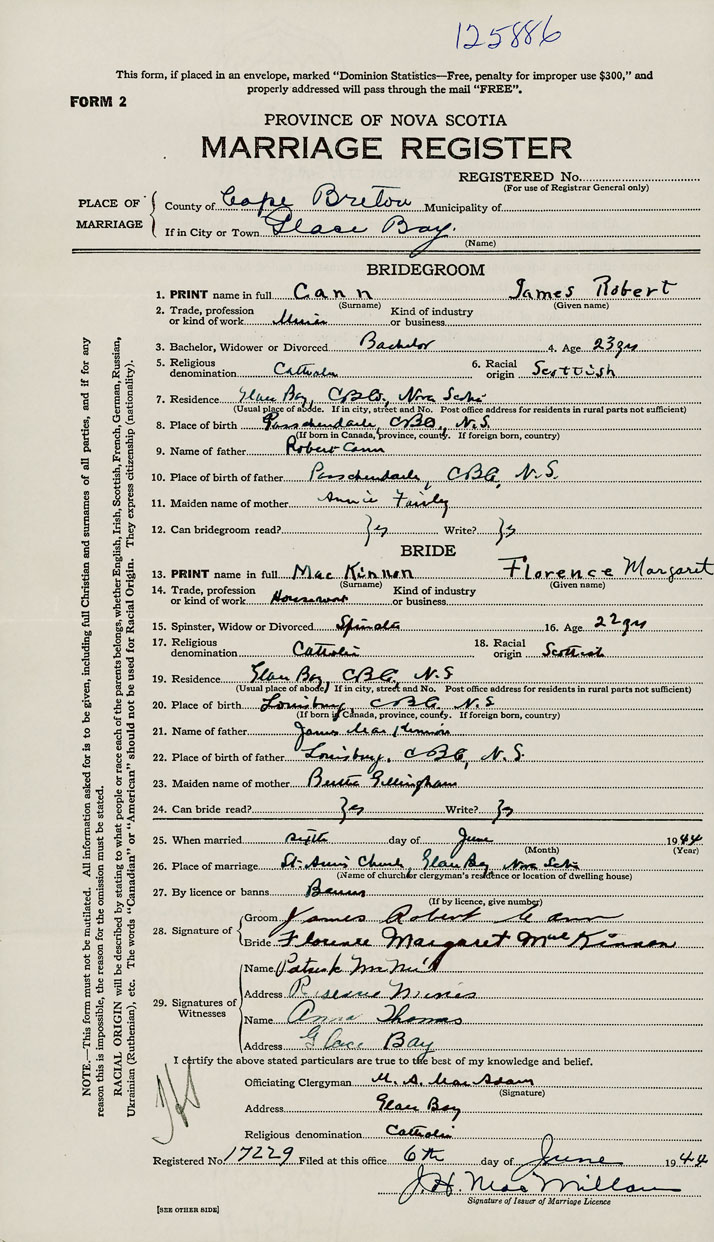 125886
This form, if placed in an envelope, marked "Dominion Statistics—Free, penalty for improper use $300," and
properly addressed will pass through the mail "FREE".
FORM 2
PROVINCE OF NOVA SCOTIA
MARRIAGE REGISTER
REGISTERED No.
(For use of Registrar General only)
PLACE OF MARRIAGE
County of Cape Breton Municipality of
If in City or Town Glace Bay.
(Name)
BRIDEGROOM
1. PRINT name in full Cann James Robert
(Surname) (Given name)
2. Trade, profession or kind of work Miner Kind of industry or business
3. Bachelor, Widower or Divorced Bachelor 4. Age 23 yrs
5. Religious denomination Catholic 6. Racial origin Scottish
7. Residence Glace Bay, C.B.Co., Nova Scotia
(Usual place of abode. If in city, street and No. Post office address for residents in rural parts not sufficient)
8. Place of birth Passchendaele, C.B.Co, N.S.
(If born in Canada, province, county. If foreign born, country)
9. Name of father Robert Cann
10. Place of birth of father Passchendaele, C.B.Co, N.S.
11. Maiden name of mother Annie
12. Can bridegroom read? Yes Write? Yes
BRIDE
13. PRINT name in full MacKinnon Florence Margaret
(Surname) (Given name)
14. Trade, profession or kind of work Housework Kind of industry or business
15. Spinster, Widow or Divorced Spinster 16. Age 22 yrs
17. Religious denomination Catholic 18. Racial origin Scottish
19. Residence Glace Bay, C.B.Co, N.S
(Usual place of abode) If in city, street and No. Post office address for residents in rural parts not sufficient)
20. Place of birth Louisburg, C.B.Co, N.S
(If born in Canada, province, county. If foreign born, country)
21. Name of father James MacKinnon
22. Place of birth of father Louisburg, C.B.Co, N.S.
23. Maiden name of mother Gillingham
24. Can bride read? Yes Write? Yes
25. When married sixth day of June 1944
(Month) (Year)
26. Place of marriage St. Ann's Church, Glace Bay, Nova Scotia
(Name of church or clergyman's residence or location of dwelling house)
27. By licence or banns Banns
(If by licence, give number)
28. Signature of
Groom James Robert Cann
Bride Florence Margaret MacKinnon
29. Signatures of Witnesses
Name Patrick
Address Reserve Mines
Name Anna Thomas
Address Glace Bay
I certify the above stated particulars are true to the best of my knowledge and belief.
Officiating Clergyman M. A. MacAdam
(Signature)
Address Glace Bay
Religious denomination Catholic
Registered No. 17229 Filed at this office 6th day of June 1944
J. H. MacMillan
Signature of Issuer of Marriage Licence
[SEE OTHER SIDE]
NOTE.—This form must not be mutilated. All information asked for is to be given, including full Christian and surnames of all parties, and if for any
reason this is impossible, the reason for the omission must be stated.
RACIAL ORIGIN will be described by stating to what people or race each of the parents belongs, whether English, Irish, Scottish, French, German, Russian,
Ukrainian (Ruthenian), etc. The words "Canadian" or "American" should not be used for Racial Origin. They express citizenship (nationality).